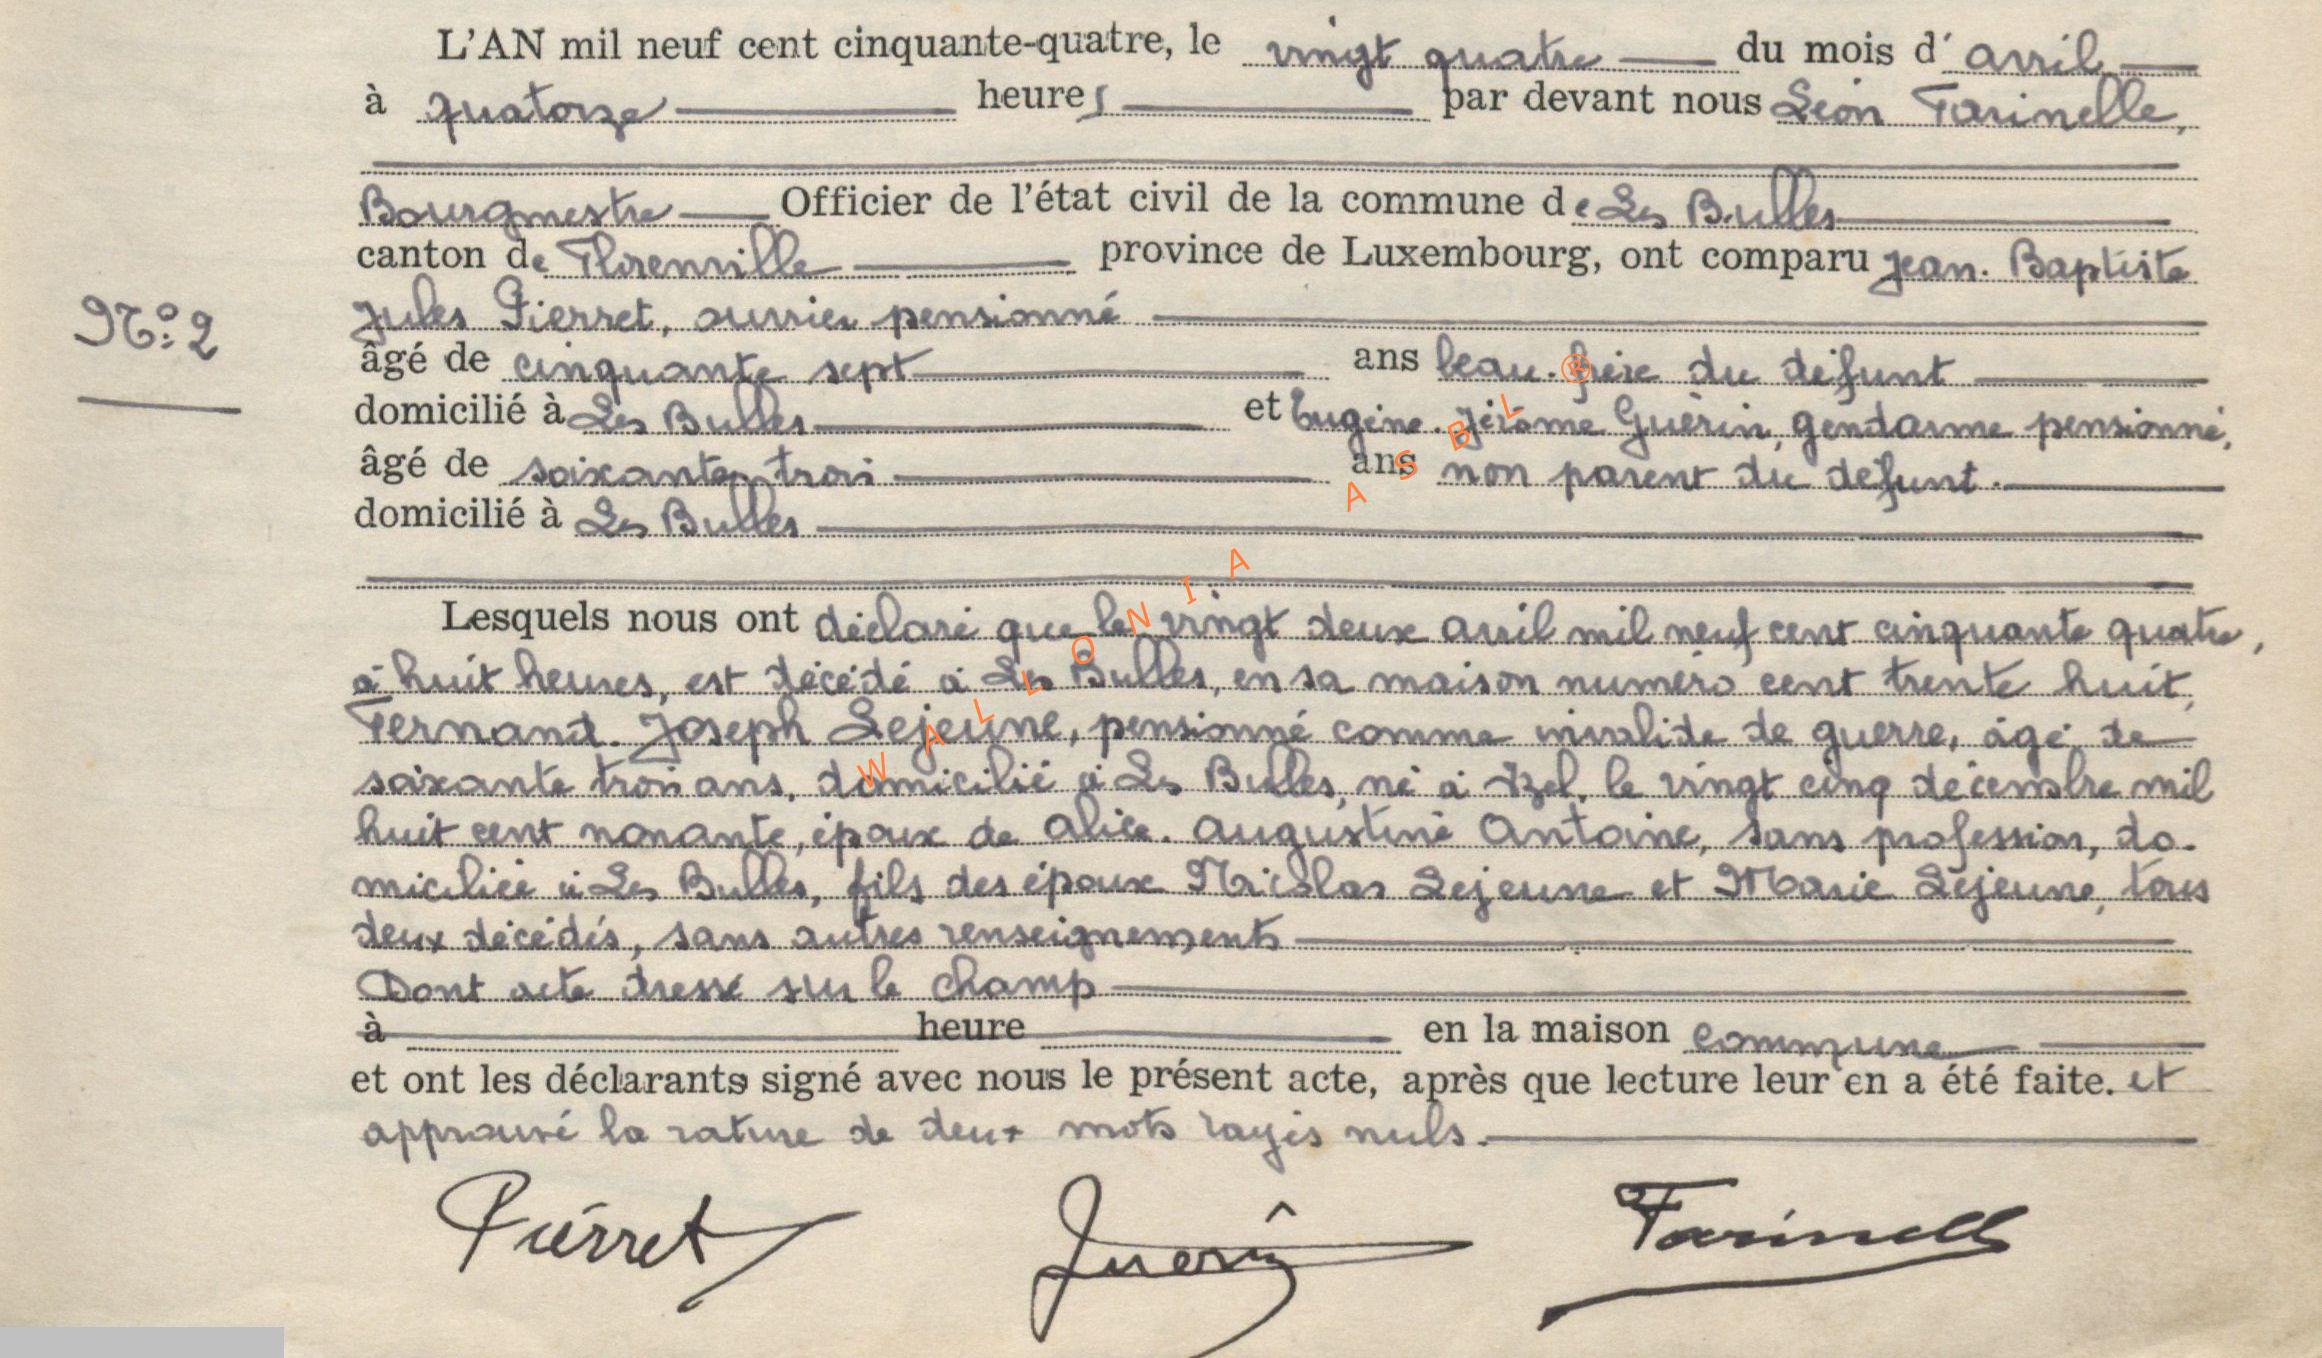 L'AN mil neuf cent cinquante-quatre, le vingt quatre du mois d'avril
à quatorze heures par devant nous Léon Farinelle,
Bourgmestre Officier de l'état civil de la commune de Les Bulles
canton de Florenville province de Luxembourg, ont comparu Jean-Baptiste
N° 2
Jules Pierret, ouvrier pensionné
âgé de cinquante sept ans beau-frère du défunt
domicilié à Les Bulles et Eugène-Jérôme Guérin, gendarme pensionné,
âgé de soixante trois ans non parent du défunt.
domicilié à Les Bulles
Lesquels nous ont déclaré que le vingt deux avril mil neuf cent cinquante quatre,
à huit heures, est décédé à Les Bulles, en sa maison numéro cent trente huit,
Fernand-Joseph Lejeune, pensionné comme invalide de guerre, âgé de
soixante trois ans, domicilié à Les Bulles, né à Izel, le vingt cinq décembre mil
huit cent nonante, époux de Alice-Augustine Antoine, sans profession, do-
miciliée à Les Bulles, fils des époux Nicolas Lejeune et Marie Lejeune, tous
deux décédés, sans autres renseignements
Dont acte dressé sur le champ
à heure en la maison commune
et ont les déclarants signé avec nous le présent acte, après que lecture leur en a été faite. et
approuvé la rature de deux mots rayés nuls.
Pierret Guérin Farinelle
WALLONIA ASBL ®